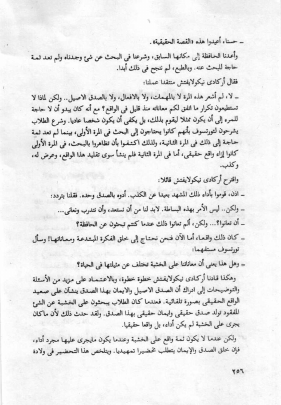 ـ حسنا، أعيدوا هذه «القصة الحقيقية».
وأعدنا الحافظة إلى مكانها السابق، وشرعنا في البحث عن شيء وجدناه ولم تعد ثمة
حاجة للبحث عنه. وبالطبع، لم ننجح في ذلك أبدا.
فقال أركادي نيكولايفتش منتقدا عملنا:
ـ لا، لم أشعر هذه المرة لا بالمهمات، ولا بالأفعال، ولا بالصدق الأصيل.. ولكن لماذا لا
تستطيعون تكرار ما اتفق لكم معاناته منذ قليل في الواقع؟ مع أنه كان يبدو أن لا حاجة
للمرء إلى أن يكون ممثلا ليقوم بذلك، بل يكفي أن يكون شخصا عاديا. وشرع الطلاب
يشرحون لتورتسوف بأنهم كانوا يحتاجون إلى البحث في المرة الأولى، بينما لم تعد ثمة
حاجة إلى ذلك في المرة الثانية، ولذلك اكتفوا بأن تظاهروا بالبحث، في المرة الأولى
كانوا إزاء واقع حقيقي، أما في المرة الثانية فلم ينشأ سوى تقليد هذا الواقع وعرض له،
وكذب.
واقترح أركادي نيكولايفتش قائلا:
ـ اذن، قوموا بأداء ذلك المشهد بعيدا عن الكذب. أدوه بالصدق وحده. فقلنا بتردد:
ـ ولكن.. ليس الأمر بهذه البساطة. لابد لنا من أن نستعد، وأن نتدرب ونعاني...
ـ أن تعانوا؟... ولكن، ألم تعانوا ذلك عندما كنتم تبحثون عن الحافظة؟
ـ كان ذلك واقعا، أما الآن فنحن نحتاج إلى خلق الفكرة المبتدعة ومعاناتها! وسأل
تورتسوف مستفهما:
ـ وهل هذا يعني أن معاناتنا على الخشبة تختلف عن مثيلتها في الحياة؟
وهكذا قادنا أركادي نيكولايفتش خطوة خطوة، وبالاعتماد على مزيد من الأسئلة
والتوضيحات إلى إدراك أن الصدق الأصيل والايمان بهذا الصدق ينشآن على صعيد
الواقع الحقيقي بصورة تلقائية. فعندما كان الطلاب يبحثون على الخشبة عن الشيء
المفقود تولد صدق حقيقي وايمان حقيقي بهذا الصدق. ولقد حدث ذلك لأن ماكان
يجري على الخشبة لم يكن أداء، بل واقعا حقيقيا.
ولكن عندما لا يكون ثمة واقع على الخشبة وعندما يكون مايجري عليها مجرد أداء،
فإن خلق الصدق والإيمان يتطلب تحضيرا تمهيديا. ويتلخص هذا التحضير في ولادة
٢٥٦